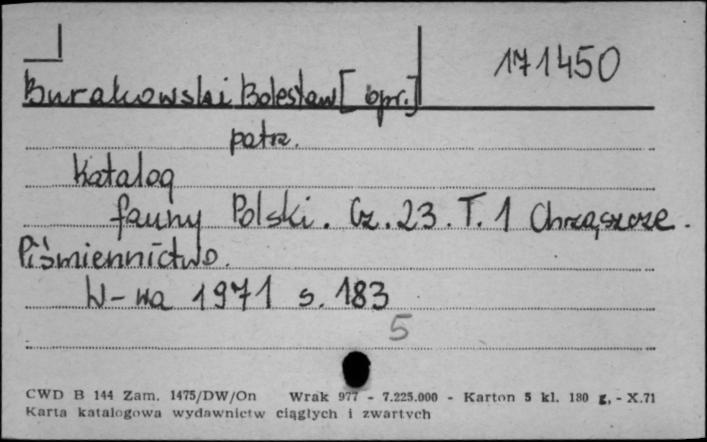 171450
Burakowski Bolesław [opr.]
patrz.
Katalog
fauny Polski. Cz. 23. T. 1 Chrząszcze.
Piśmiennictwo.
W-wa 1971 s. 183
5
CWD B 144 Zam. 1475/DW/On Wrak 977 - 7.225.000 - Karton 5 kl. 180 g, - X.71
Karta katalogowa wydawnictw ciągłych i zwartych